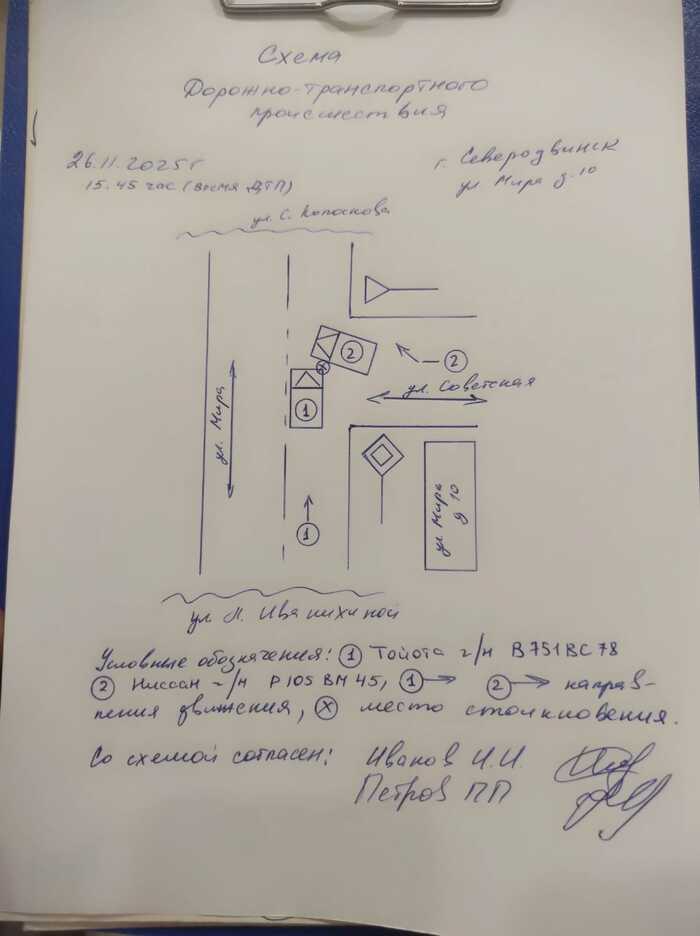 Схема
Дорожно-транспортного
происшествия
26.11.2025г
15.45 час (время ДТП)
г. Северодвинск
ул Мира д 10
ул. С.
2
2
1
ул. Советская
ул. Мира
1
ул. Мира
д 10
ул
Условные обозначения: 1 Тойота г/н В751ВС78
2 Ниссан г/н Р105ВМ45, 1 → 2 → направ-
ления движения, X место столкновения.
Со схемой согласен: Иванов И.И.
Петров ПП